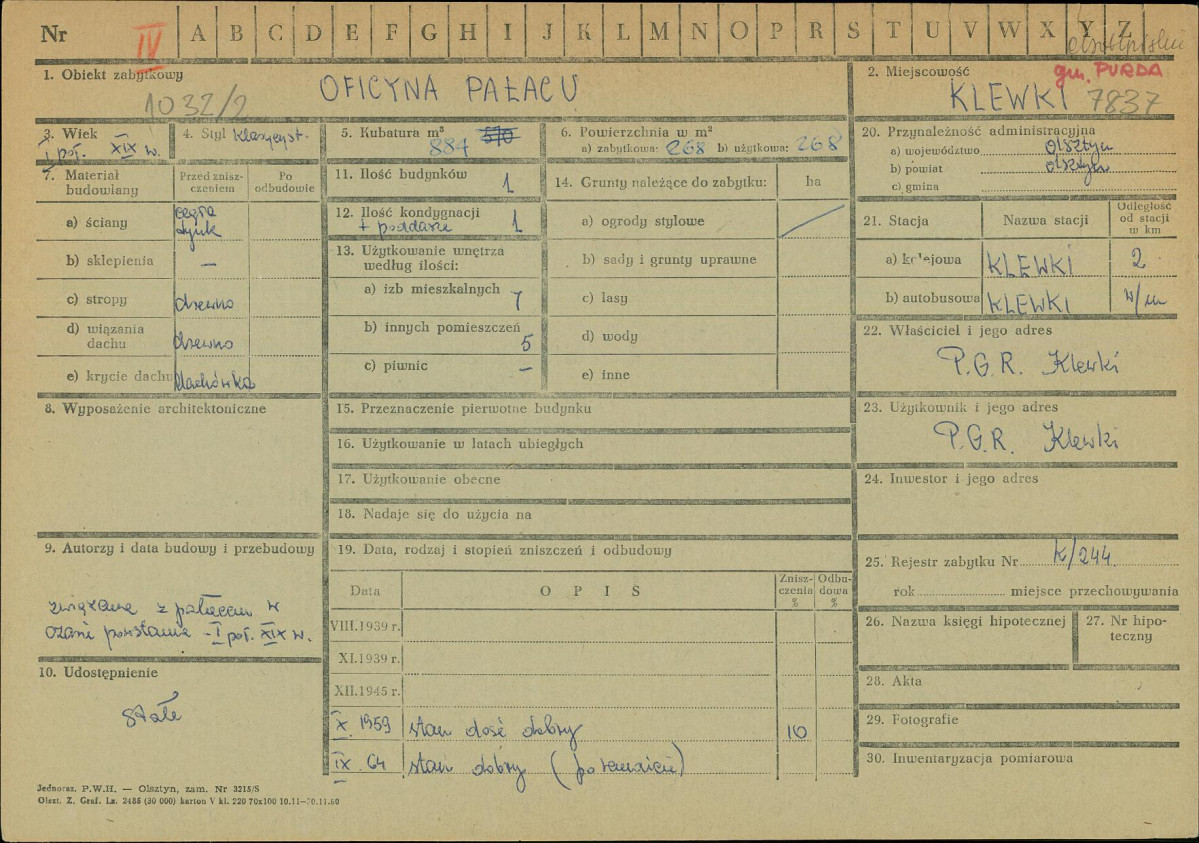 Nr IV A B C D E F G H I J K L M N O P R S T U V W X Y Z
1. Obiekt zabytkowy
1032/2
OFICYNA PAŁACU
2. Miejscowość
gm. PURDA
KLEWKI 7837
3. Wiek
I poł. XIX w.
4. Styl klasycyst.
5. Kubatura m³
884 570
6. Powierzchnia w m²
a) zabytkowa: 268 b) użytkowa: 268
7. Materiał budowiany
Przed znisz-
czeniem
Po
odbudowie
a) ściany cegła
tynk
b) sklepienia —
c) stropy drewno
d) wiązania
dachu drewno
e) krycie dachu dachówka
8. Wyposażenie architektoniczne
9. Autorzy i data budowy i przebudowy
związana z pałacem w
czasie powstania - I poł. XIX w.
10. Udostępnienie
stałe
11. Ilość budynków 1
12. Ilość kondygnacji 1
+ poddasze
13. Użytkowanie wnętrza
według ilości:
a) izb mieszkalnych 7
b) innych pomieszczeń 5
c) piwnic —
14. Grunty należące do zabytku: ha
a) ogrody stylowe
b) sady i grunty uprawne
c) lasy
d) wody
e) inne
15. Przeznaczenie pierwotne budynku
16. Użytkowanie w latach ubiegłych
17. Użytkowanie obecne
18. Nadaje się do użycia na
19. Data, rodzaj i stopień zniszczeń i odbudowy
Data
O P I S
Znisz-
czenia
%
Odbu-
dowa
%
VIII.1939 r.
XI.1939 r.
XII.1945 r.
X. 1959 stan dość dobry 10
IX. 64 stan dobry (po remoncie)
20. Przynależność administracyjna
a) województwo Olsztyn
b) powiat Olsztyn
c) gmina
21. Stacja
Nazwa stacji
Odległość
od stacji
w km
a) kolejowa KLEWKI 2
b) autobusowa KLEWKI w/m
22. Właściciel i jego adres
P.G.R. Klewki
23. Użytkownik i jego adres
P.G.R. Klewki
24. Inwestor i jego adres
25. Rejestr zabytku Nr K/244
rok miejsce przechowywania
26. Nazwa księgi hipotecznej
27. Nr hipo-
teczny
28. Akta
29. Fotografie
30. Inwentaryzacja pomiarowa
Jednoraz. P.W.H. — Olsztyn, zam. Nr 3215/S
Olszt. Z. Graf. Lz. 2485 (30 000) karton V kl. 220 70x100 10.11—30.11.60